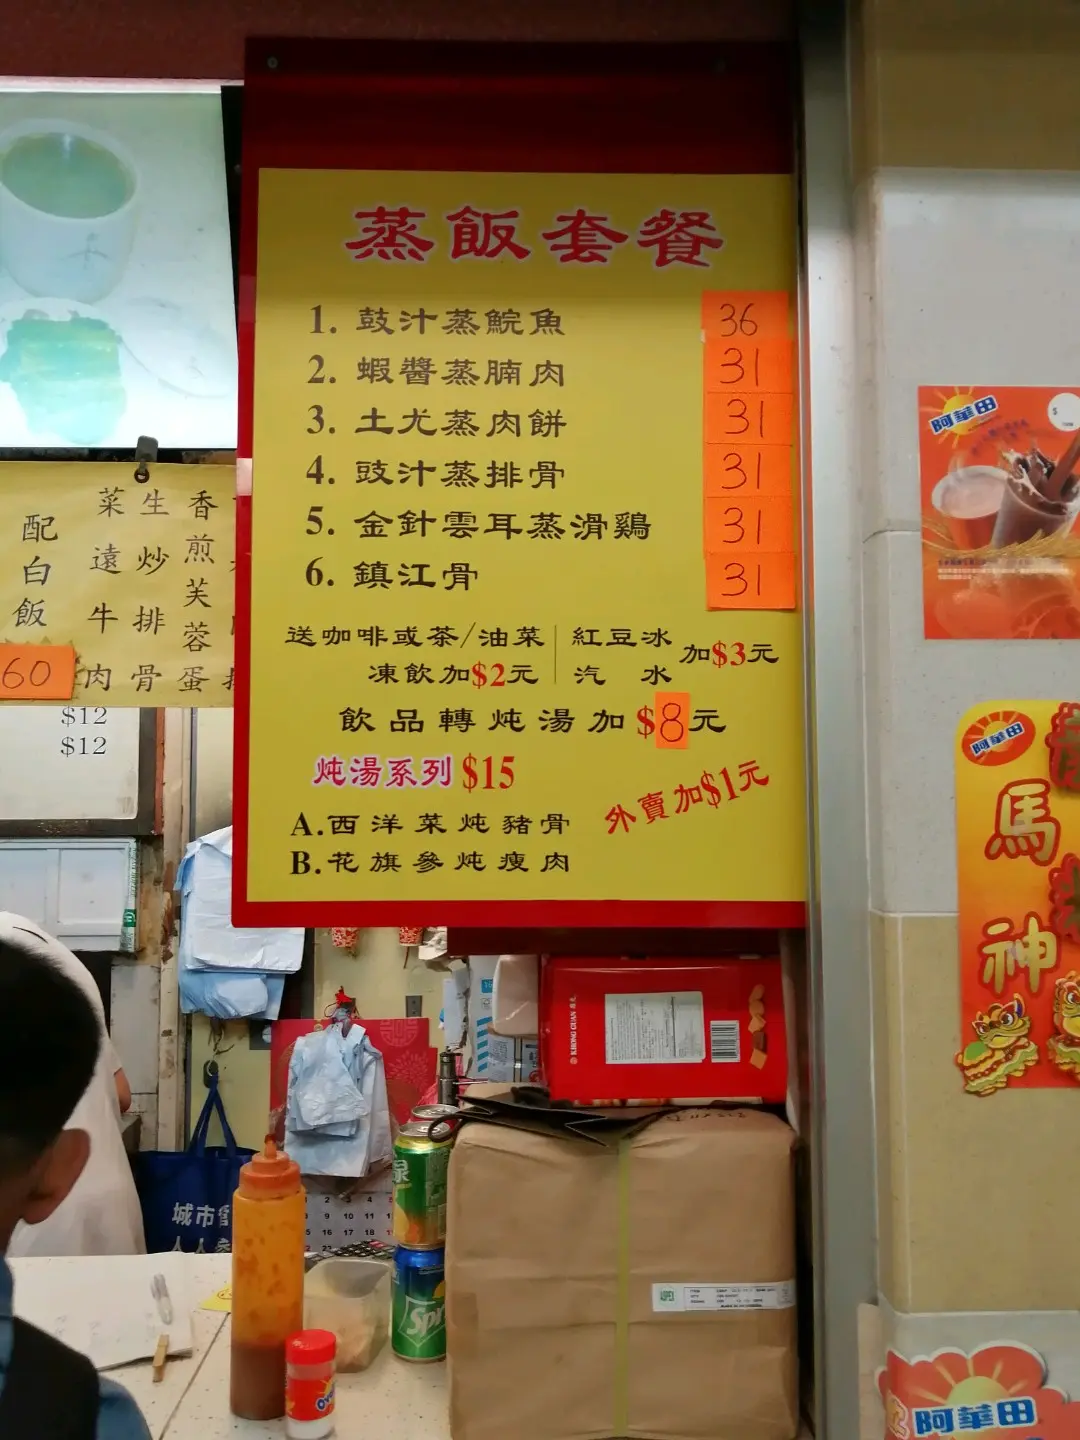 蒸飯套餐
1. 鼓汁蒸鯇魚 36
2. 蝦醬蒸腩肉 31
3. 土尤蒸肉餅 31
4. 豉汁蒸排骨 31
5. 金針雲耳蒸滑鷄 31
6. 鎮江骨 31
送咖啡或茶/油菜
凍飲加$2元
紅豆冰
汽水
加$3元
飲品轉炖湯加$8元
炖湯系列 $15
外賣加$1元
A.西洋菜炖豬骨
B.花旗參炖瘦肉
配白飯
60
菜遠牛肉
生炒排骨
香煎芙蓉蛋
$12
$12
阿華田
阿華田
馬
神
城市
KHONG GUAN
Spr
阿華田